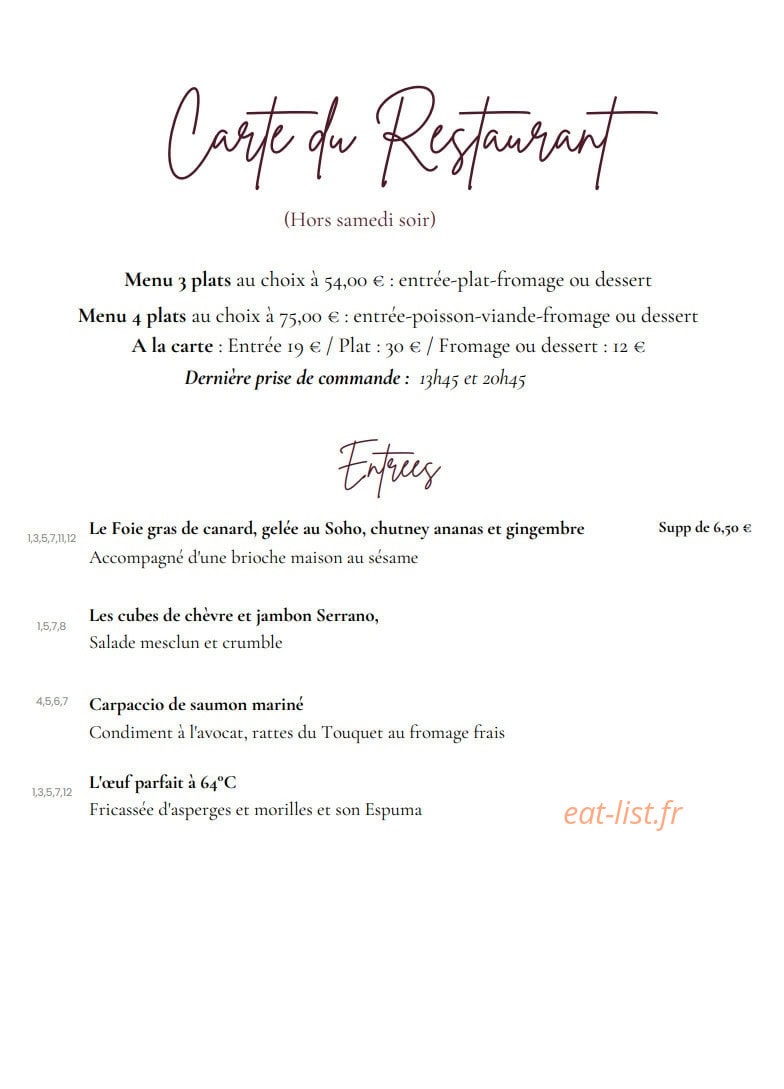 Carte du Restaurant
(Hors samedi soir)
Menu 3 plats au choix à 54,00 € : entrée-plat-fromage ou dessert
Menu 4 plats au choix à 75,00 € : entrée-poisson-viande-fromage ou dessert
A la carte : Entrée 19 € / Plat : 30 € / Fromage ou dessert : 12 €
Dernière prise de commande : 13h45 et 20h45
Entrees
1,3,5,7,11,12 Le Foie gras de canard, gelée au Soho, chutney ananas et gingembre Supp de 6,50 €
Accompagné d'une brioche maison au sésame
1,5,7,8 Les cubes de chèvre et jambon Serrano,
Salade mesclun et crumble
4,5,6,7 Carpaccio de saumon mariné
Condiment à l'avocat, rattes du Touquet au fromage frais
1,3,5,7,12 L'œuf parfait à 64°C
Fricassée d'asperges et morilles et son Espuma
eat-list.fr